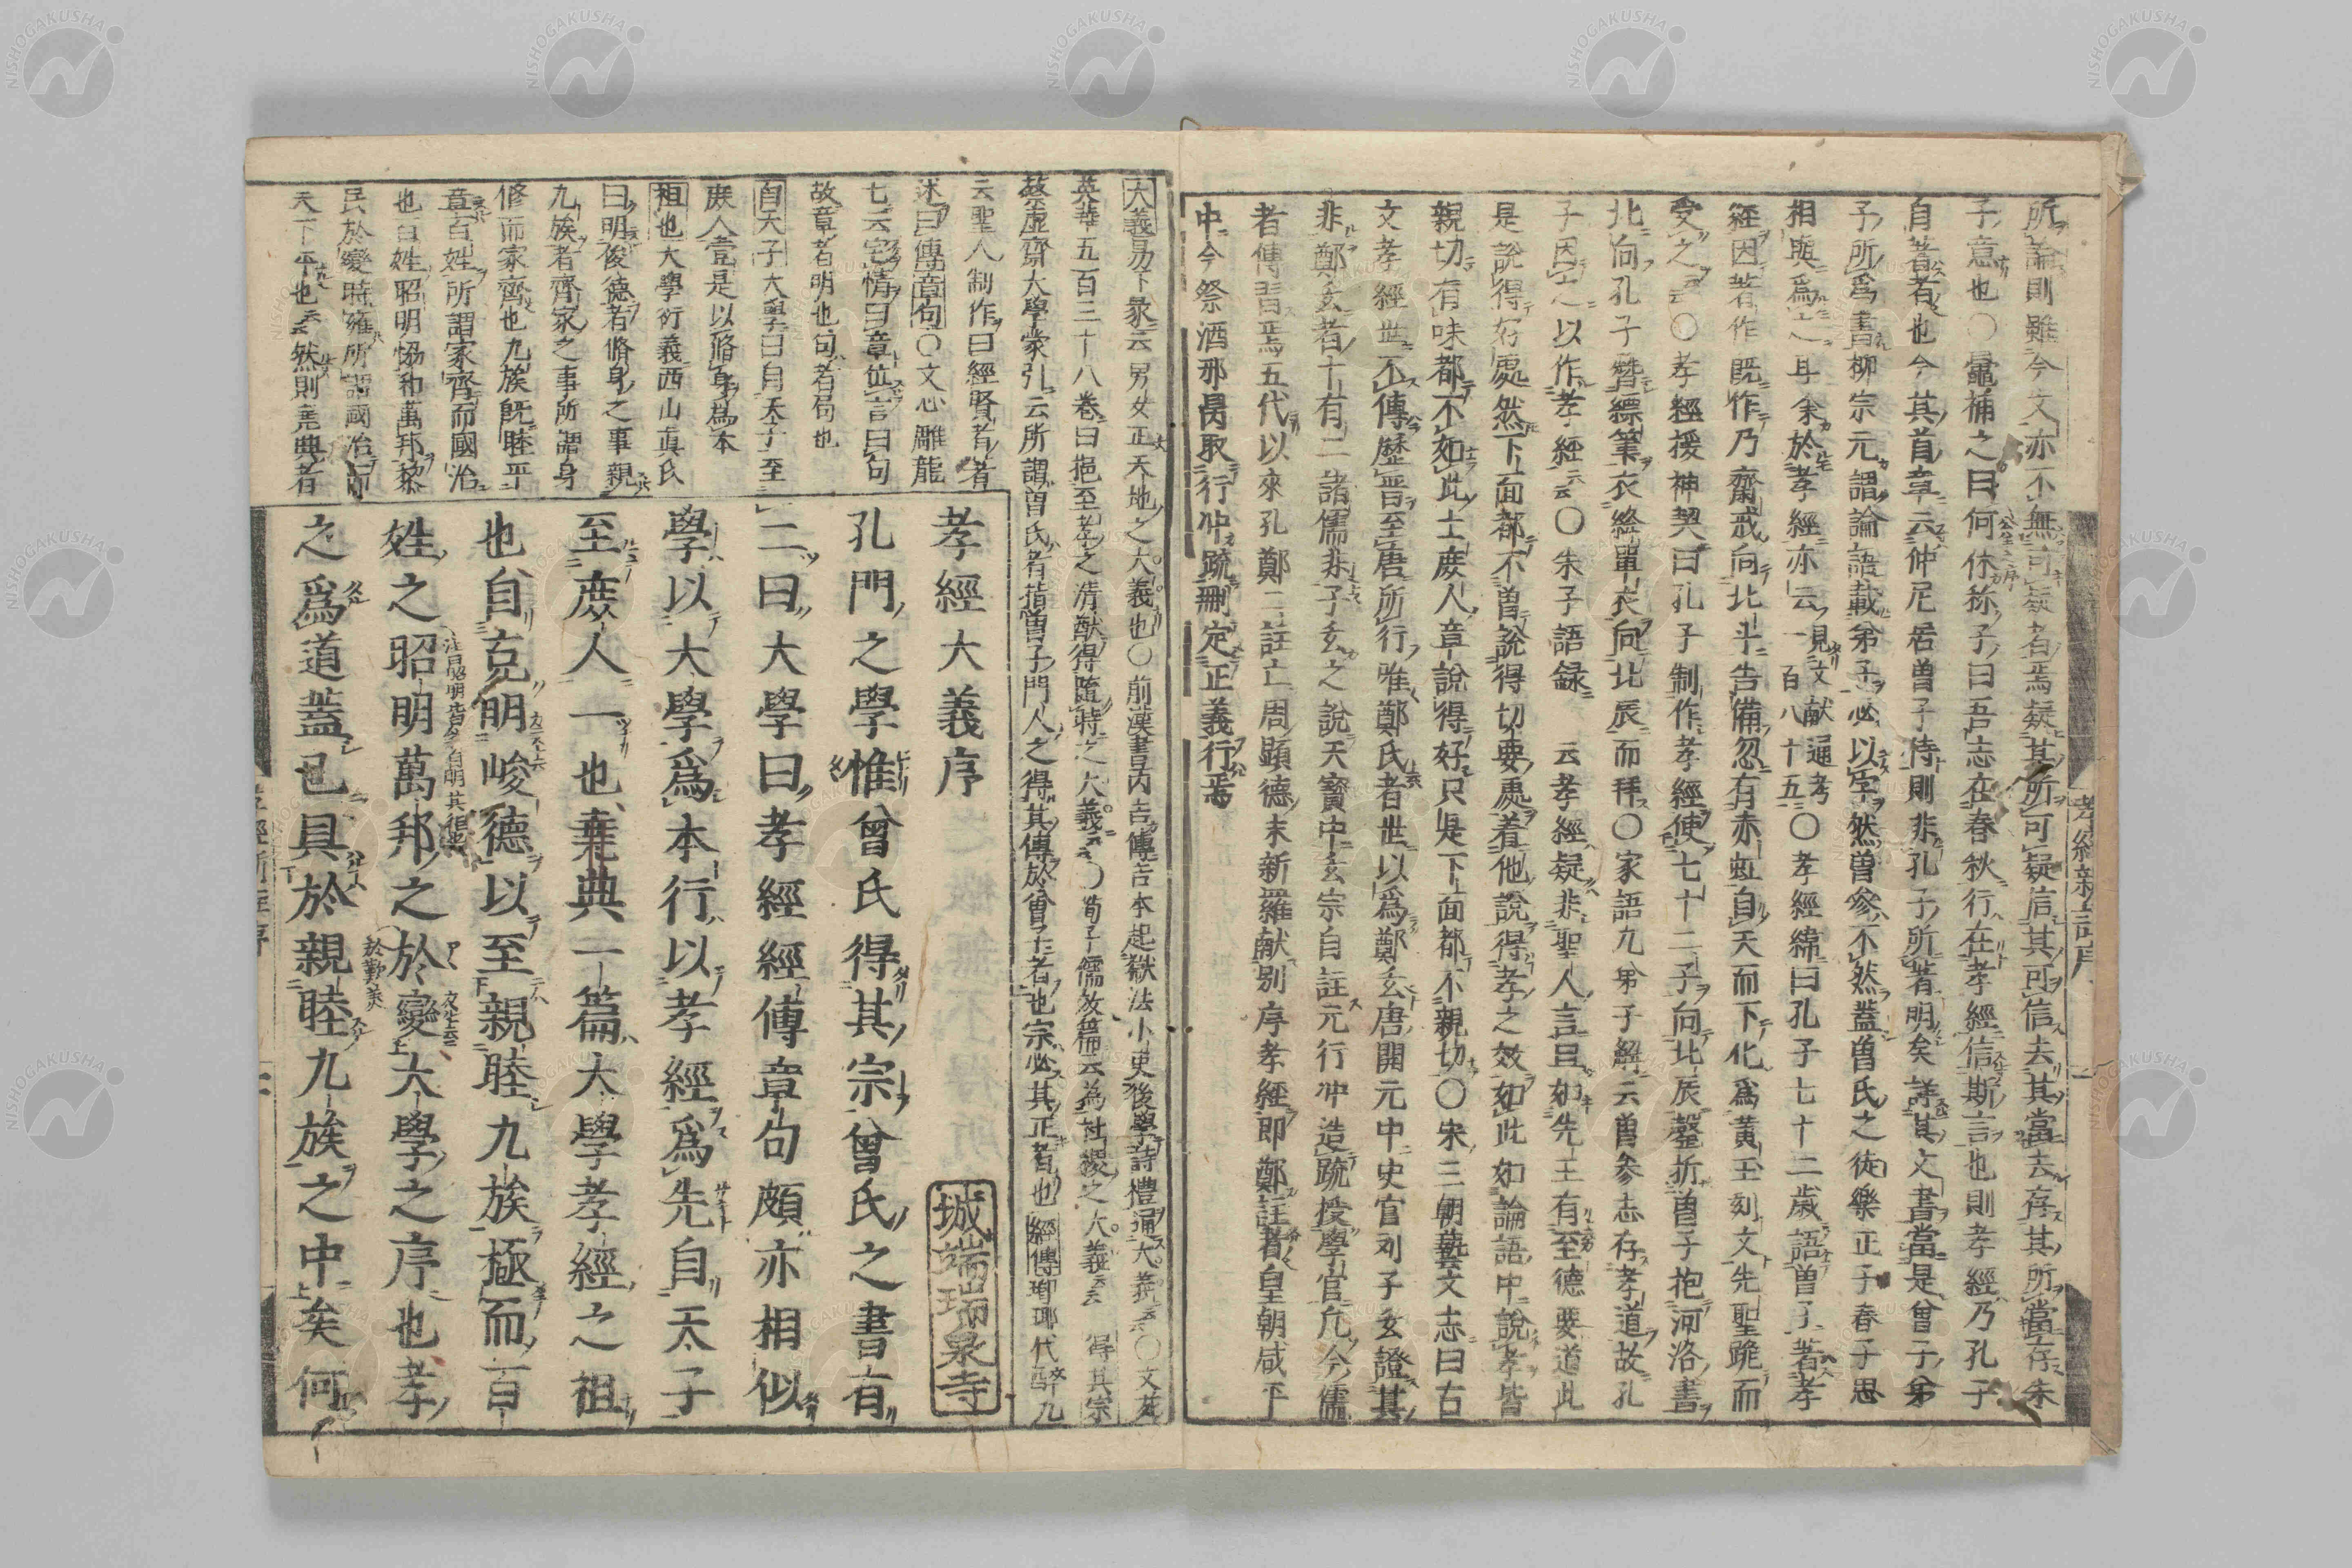 所論則雖今文亦不無可疑者焉疑其所可疑信其可信去其當去存其所當存朱
子意也○鼂補之曰何休称子曰吾志在春秋行在孝經信斯言也則孝經乃孔子
自著者也今其首章云仲尼居曽子侍則非孔子所著明矣詳其文書當是曾子弟
子所爲書柳宗元謂論語載弟子必以字然曽參不然蓋曽氏之徒樂正子春子思
相與爲之耳余於孝經亦云見文献通考一百八十五○孝經緯曰孔子七十二歲語曽子著孝
經因著作既作乃齋戒向北斗告備忽有赤虹自天而下化爲黄玉刻文先聖跪而
受之云○孝經援神契曰孔子制作孝經使七十二子向北辰磬折曽子抱河洛書
北向孔子簪縹筆衣絳單衣向北辰而拜○家語九弟子解云曽参志存孝道故孔
子因之以作孝經云云○朱子語録 云孝經疑非聖人言且如先王有至德要道此
是說得好處然下面都不曽說得切要處着他說得孝之效如此如論語中說孝皆
親切有味都不如此士庶人章說得好只是下面都不親切○宋三朝藝文志曰古
文孝經世不傳歷晋至唐所行唯鄭氏者世以爲鄭玄唐開元中史官刘子玄證其
非鄭玄者十有二諸儒非子玄之說天寳中玄宗自註元行冲造疏授學官凡今儒
者傳習焉五代以來孔鄭二註亡周顯德末新羅献别序孝經即鄭註者皇朝咸平
中今祭酒邢昺取行冲疏刪定正義行焉
孝經新註序
大義易下彖云男女正天地之大義也○前漢書丙吉傳吉本起獄法小吏後學詩禮通大義云云○文苑
英華五百三十八卷曰挹至孝之清猷得隨時之大義云云○荀子儒效篇云為社稷之大義云云 得其宗
蔡虚齋大學蒙引云所謂曽氏者指曽子門人之得其傳於曾子者也宗必其正者也經傳瑯琊代醉九
云聖人制作曰經賢者著
述曰傳章句○文心雕龍
七云宅情曰章位言曰句
故章者明也句者局也
自天子大學曰自天子至
庶人壹是以脩身爲本
祖也大學衍義西山眞氏
曰明俊德者脩身之事親
九族者齊家之事所謂身
修而家齊也九族既睦平
章百姓所謂家齊而國治
也百姓昭明恊和萬邦黎
民於變時雍所謂國治而
天下平也云云然則堯典者
孝經大義序
城端瑞泉寺
孔門之學惟曾氏得其宗曾氏之書有
二曰大學曰孝經經傳章句頗亦相似
學以大學爲本行以孝經爲先自天子
至庶人一也堯典一篇大學孝經之祖
也自克明峻德以至親睦九族極而百
姓之昭明萬邦之於變大學之序也孝
之爲道蓋已具於親睦九族之中矣何